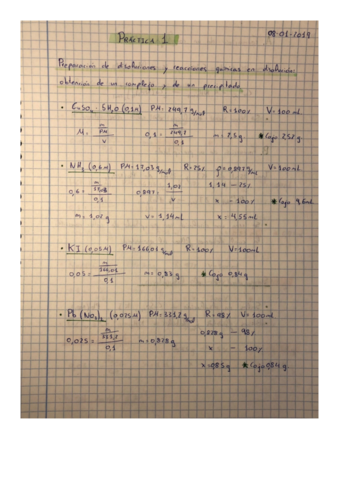 08-01-2019
PRÁCTICA 1
Preparación de disoluciones y reacciones químicas en disolución:
obtención de un complejo y de un precipitado.
• CuSO₄ · 5H₂O (0,1M) P.M: 249,7 g/mol R=100% V=100mL
M = m/P.M / V 0,1 = m/249,7 / 0,1 m = 2,5g * Cojo 2,52g
• NH₃ (0,6M) P.M: 17,03 g/mol R=25% V=100mL
0,6 = m/17,03 / 0,1 0,891 = 1,02 / V 1,14 - 25% * Cojo
m = 1,02g v = 1,14mL x - 100%
x = 4,55mL
• KI (0,05M) P.M: 166,01 g R=100% V=100mL
0,05 = m/166,01 / 0,1 m = 0,83g * Cojo 0,84g
• Pb(NO₃)₂ (0,025M) P.M: 331,2 g R=98% V=100mL
0,025 = m/331,2 / 0,1 m = 0,828g 0,828g - 98%
x - 100%
x = 0,85g * Cojo 0,84g